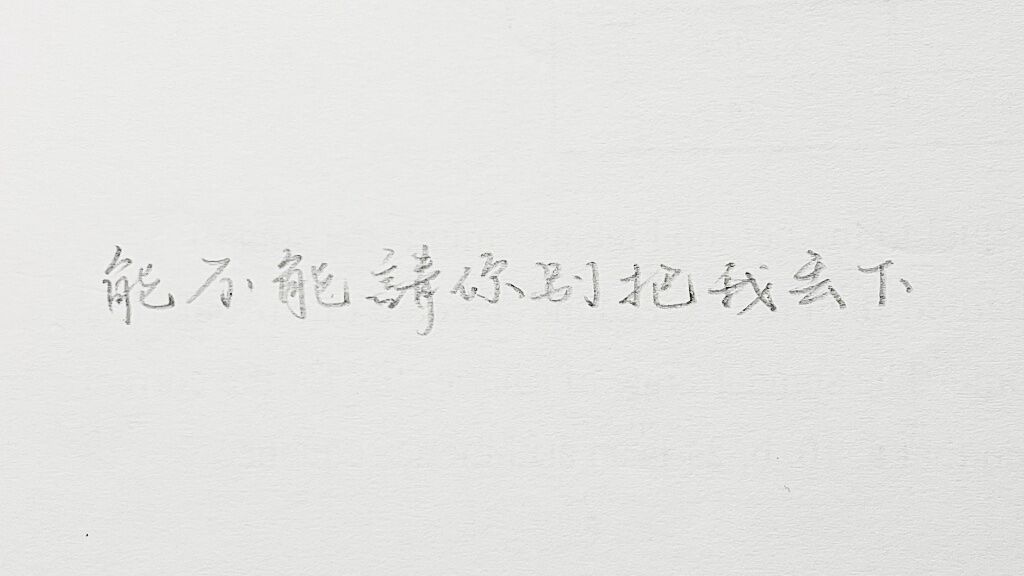 能不能請你別把我丟下